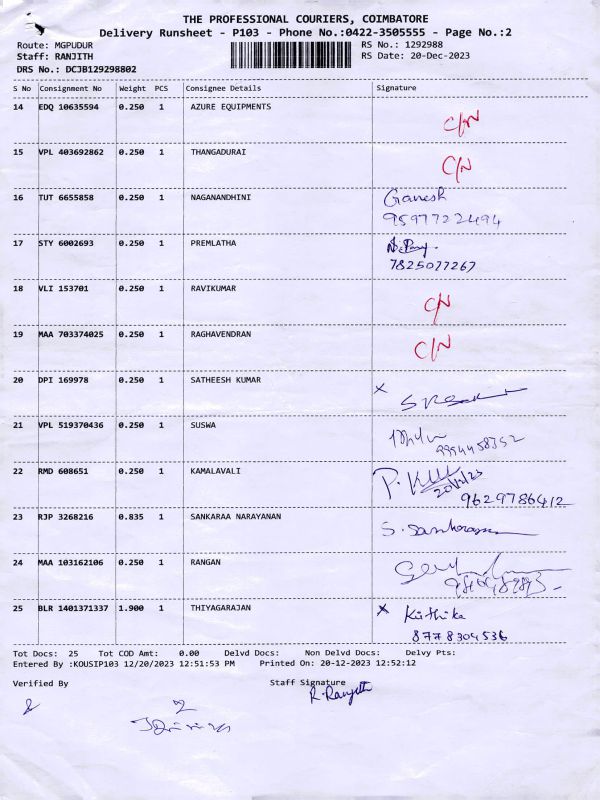 THE PROFESSIONAL COURIERS, COIMBATORE
Delivery Runsheet - P103 - Phone No.:0422-3505555 - Page No.:2
Route: MGPUDUR RS No.: 1292988
Staff: RANJITH RS Date: 20-Dec-2023
DRS No.: DCJB129298802
S No Consignment No Weight PCS Consignee Details Signature
14 EDQ 10635594 0.250 1 AZURE EQUIPMENTS C/N
15 VPL 403692862 0.250 1 THANGADURAI C/N
16 TUT 6655858 0.250 1 NAGANANDHINI Ganesh
9597722494
17 STY 6002693 0.250 1 PREMLATHA
7825077267
18 VLI 153701 0.250 1 RAVIKUMAR C/N
19 MAA 703374025 0.250 1 RAGHAVENDRAN C/N
20 DPI 169978 0.250 1 SATHEESH KUMAR X
21 VPL 519370436 0.250 1 SUSWA
9994458352
22 RMD 608651 0.250 1 KAMALAVALI P.
20/12/23
9629786412
23 RJP 3268216 0.835 1 SANKARAA NARAYANAN S.
24 MAA 103162106 0.250 1 RANGAN
25 BLR 1401371337 1.900 1 THIYAGARAJAN X Kiithika
8778304536
Tot Docs: 25 Tot COD Amt: 0.00 Delvd Docs: Non Delvd Docs: Delvy Pts:
Entered By :KOUSIP103 12/20/2023 12:51:53 PM Printed On: 20-12-2023 12:52:12
Verified By Staff Signature
R.Ranjith